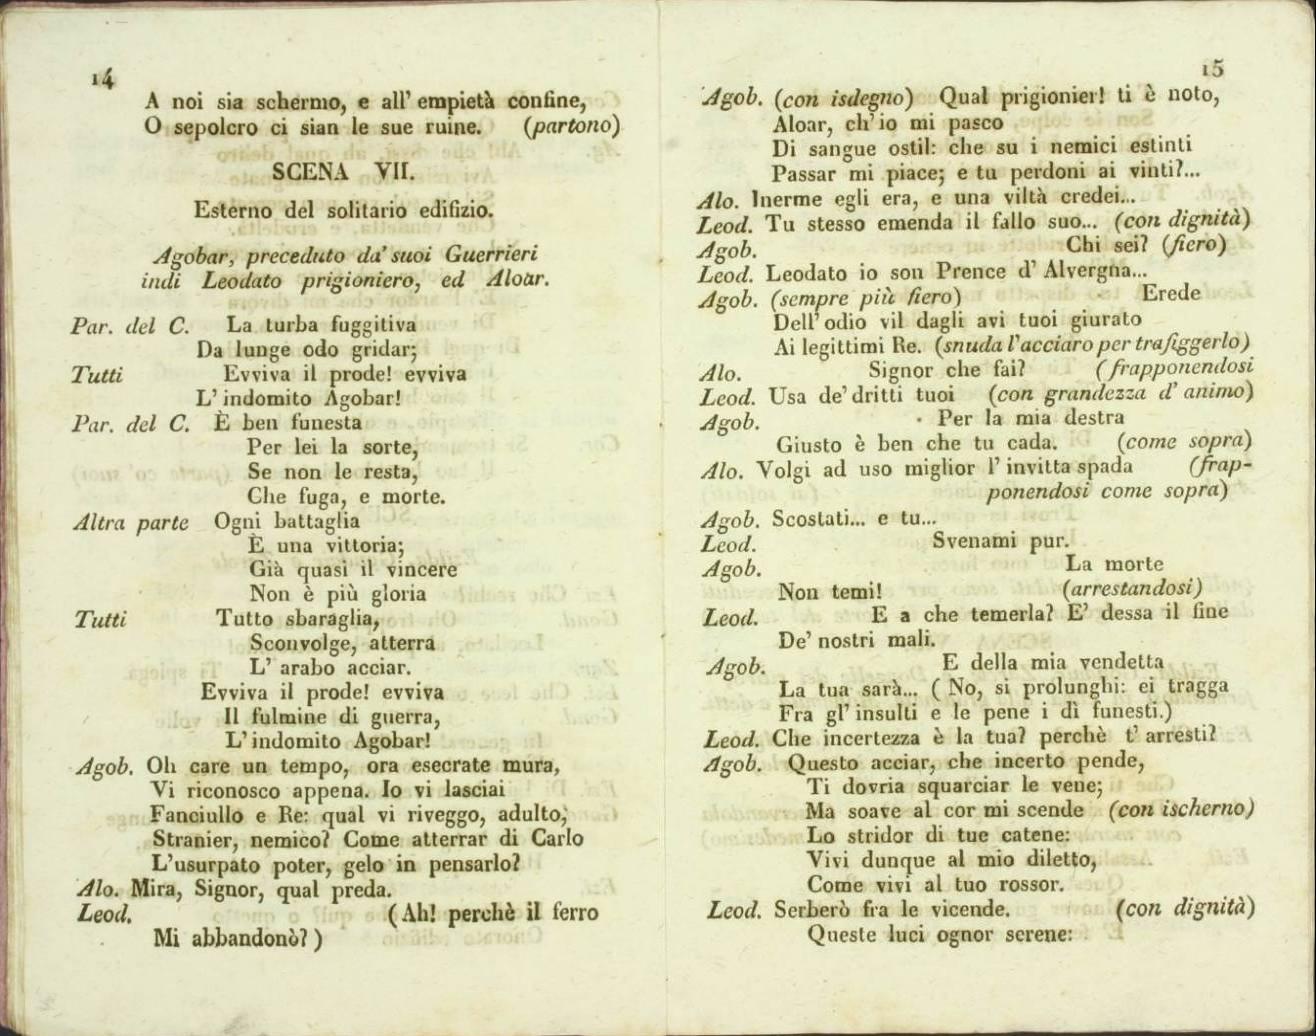 14
A noi sia schermo, e all' empietà confine,
O sepolcro ci sian le sue ruine. (partono)
SCENA VII.
Esterno del solitario edifizio.
Agobar, preceduto da' suoi Guerrieri
indi Leodato prigioniero, ed Aloar.
Par. del C. La turba fuggitiva
Da lunge odo gridar;
Tutti Evviva il prode! evviva
L' indomito Agobar!
Par. del C. È ben funesta
Per lei la sorte,
Se non le resta,
Che fuga, e morte.
Altra parte Ogni battaglia
È una vittoria;
Già quasi il vincere
Non è più gloria
Tutti Tutto sbaraglia,
Sconvolge, atterra
L' arabo acciar.
Evviva il prode! evviva
Il fulmine di guerra,
L' indomito Agobar!
Agob. Oh care un tempo, ora esecrate mura,
Vi riconosco appena. Io vi lasciai
Fanciullo e Re: qual vi riveggo, adulto,
Stranier, nemico? Come atterrar di Carlo
L'usurpato poter, gelo in pensarlo?
Alo. Mira, Signor, qual preda.
Leod. (Ah! perchè il ferro
Mi abbandonò?)
15
Agob. (con isdegno) Qual prigionier! ti è noto,
Aloar, ch' io mi pasco
Di sangue ostil: che su i nemici estinti
Passar mi piace; e tu perdoni ai vinti?...
Alo. Inerme egli era, e una viltà credei...
Leod. Tu stesso emenda il fallo suo... (con dignità)
Agob. Chi sei? (fiero)
Leod. Leodato io son Prence d' Alvergna...
Agob. (sempre più fiero) Erede
Dell' odio vil dagli avi tuoi giurato
Ai legittimi Re. (snuda l'acciaro per trafiggerlo)
Alo. Signor che fai? (frapponendosi
Leod. Usa de' dritti tuoi (con grandezza d' animo)
Agob. Per la mia destra
Giusto è ben che tu cada. (come sopra)
Alo. Volgi ad uso miglior l' invitta spada (frap-
ponendosi come sopra)
Agob. Scostati... e tu...
Leod. Svenami pur.
Agob. La morte
Non temi! (arrestandosi)
Leod. E a che temerla? E' dessa il fine
De' nostri mali.
Agob. E della mia vendetta
La tua sarà... ( No, si prolunghi: ei tragga
Fra gl' insulti e le pene i dì funesti.)
Leod. Che incertezza è la tua? perchè t' arresti?
Agob. Questo acciar, che incerto pende,
Ti dovria squarciar le vene;
Ma soave al cor mi scende (con ischerno)
Lo stridor di tue catene:
Vivi dunque al mio diletto,
Come vivi al tuo rossor.
Leod. Serberò fra le vicende. (con dignità)
Queste luci ognor serene: